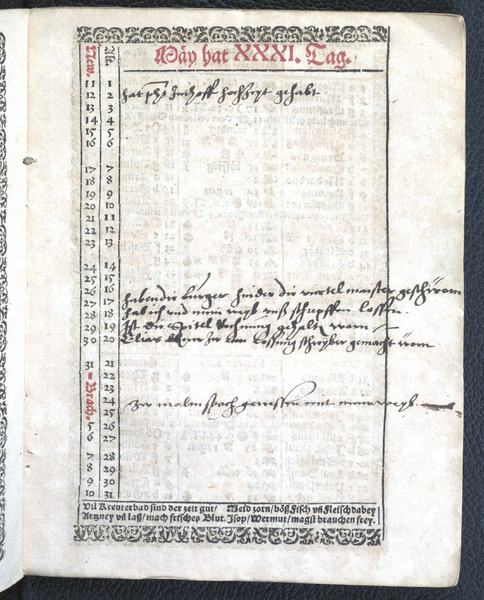 May hat XXXI. Tag.
New. Alt.
11 1
12 2 gehabt
13 3
14 4
15 5
16 6
17 7
18 8
19 9
20 10
21 11
22 12
23 13
24 14
25 15
26 16 haben die burger hinder die viertel maister geschworn
27 17 hab ich und mein weyb lassen
28 18 Ist die Spitel Rechnung gehalten worn
29 19
30 20 Elias schreyber gemacht worn
31 21
Brach. 22
23
24 Zu mit mein weyb
25
5 26
6 27
7 28
8 29
9 30
10 31
Vil Kreuterbad sind der zeit gut / Meid zorn / böß Fisch vñ Fleisch dabey
Artzney vñ laß / mach frisches Blut. Isop / Wermut / magst brauchen frey.